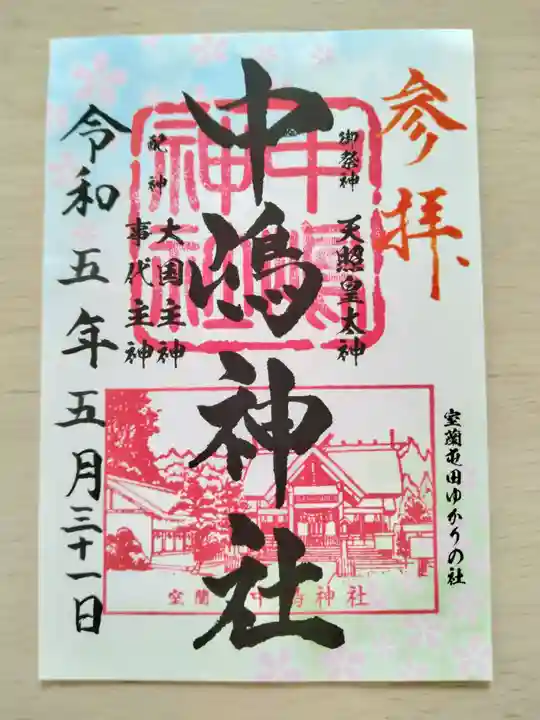 参拝
室蘭屯田ゆかりの社
御祭神
天照皇大神
中嶋神社
中嶋神社
配神
大国主神
事代主神
令和五年五月三十一日
室蘭 中嶋神社